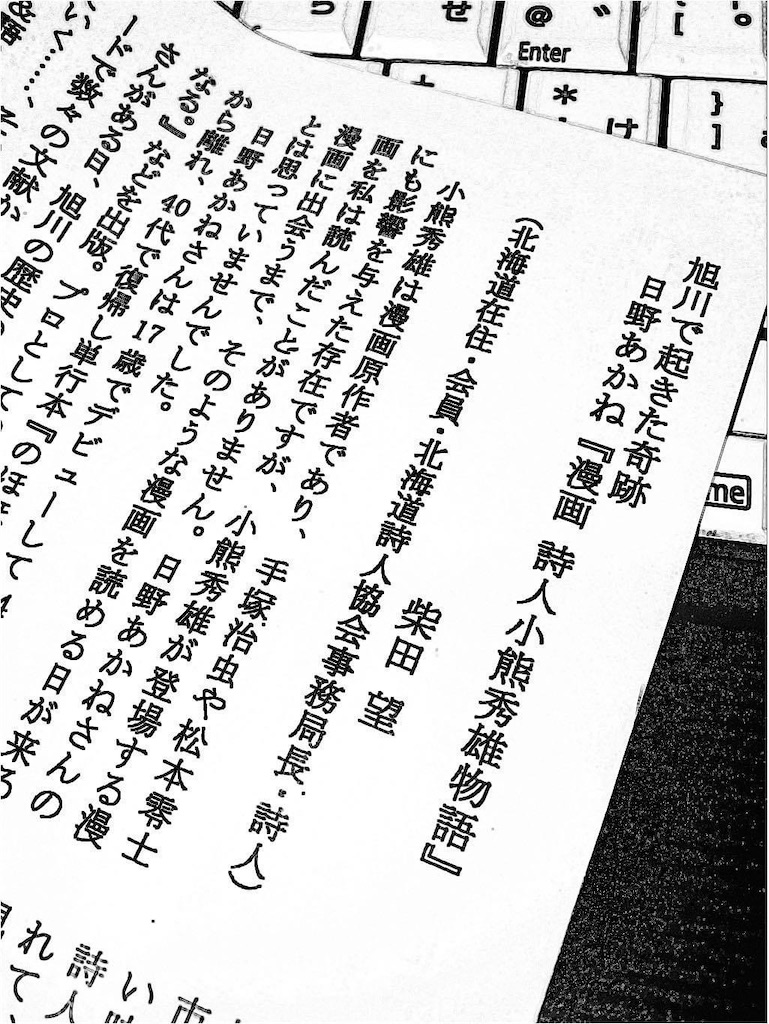 旭川で起きた奇跡
日野あかね『漫画 詩人小熊秀雄物語』
柴田 望
(北海道在住・会員・北海道詩人協会事務局長・詩人)
小熊秀雄は漫画原作者であり、手塚治虫や松本零士
にも影響を与えた存在ですが、小熊秀雄が登場する漫
画を私は読んだことがありません。日野あかねさんの
漫画に出会うまで、そのような漫画を読める日が来る
とは思っていませんでした。
日野あかねさんは17歳でデビューして4
から離れ、40代で復帰し単行本『のほ
なる。』などを出版。プロとして
さんがある日、旭川の歴史の
ードで数々の文献か
いく……、そ
市
い
詩人
れて、
せ
@
Enter
*
け
}
]
[
me